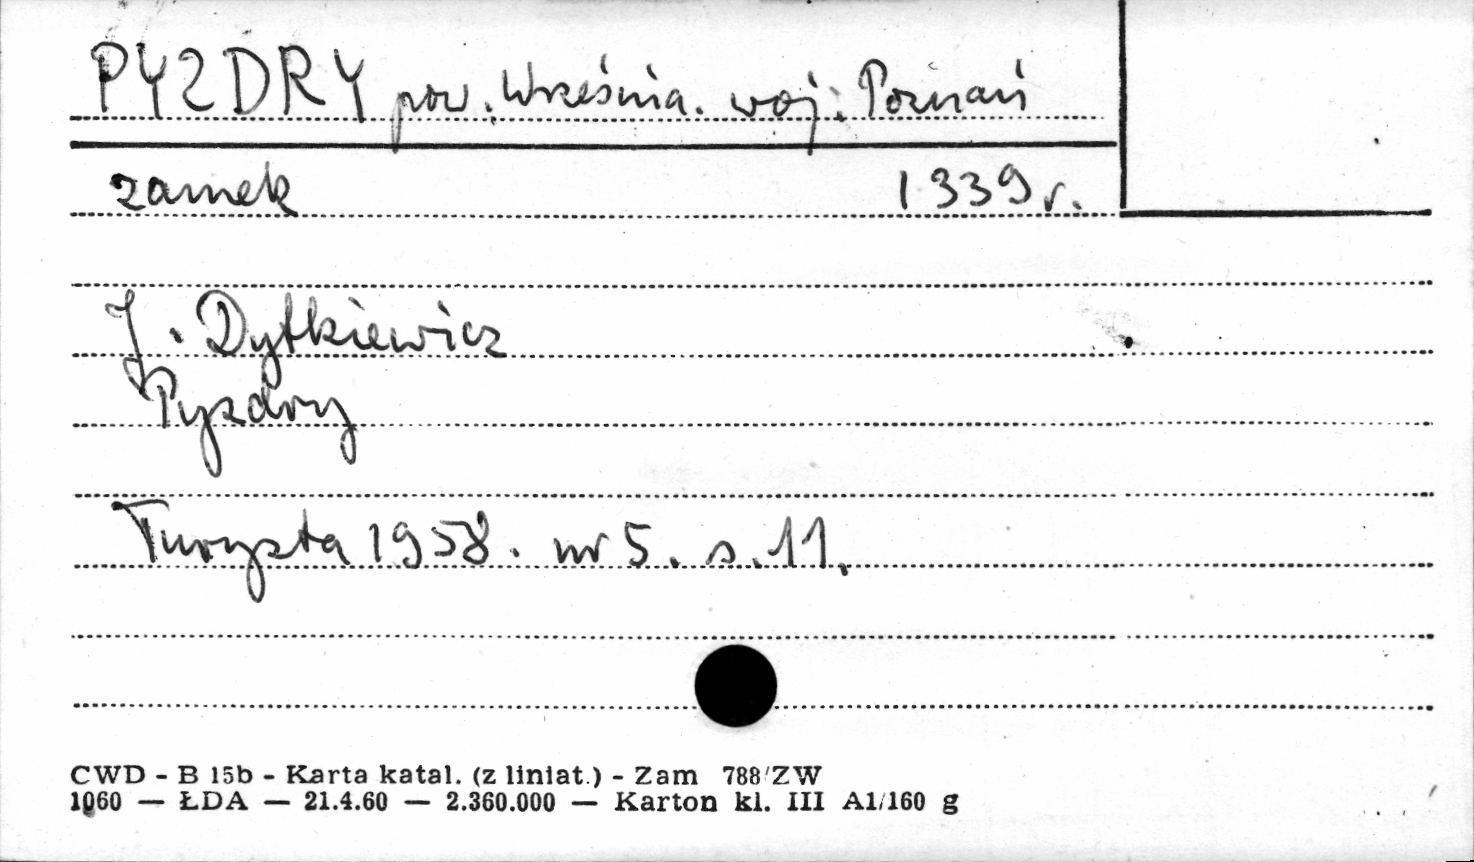 PYZDRY pow. Września. woj. Poznań
zamek 1339 r.
J. Dytkiewicz
Pyzdry
Turysta 1958. nr 5. s. 11.
CWD - B 15b - Karta katal. (z liniat.) - Zam 788/ZW
1060 — ŁDA — 21.4.60 — 2.360.000 — Karton kl. III A1/160 g